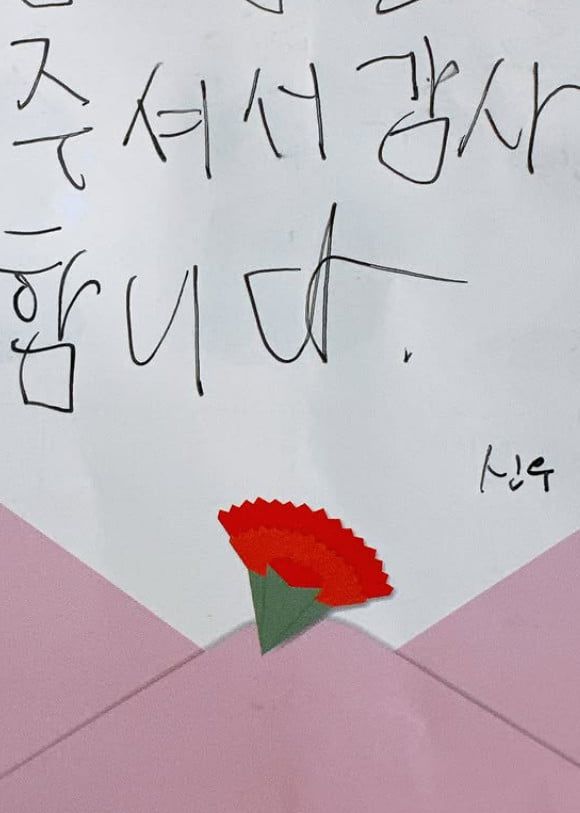 주셔서 감사
합니다.